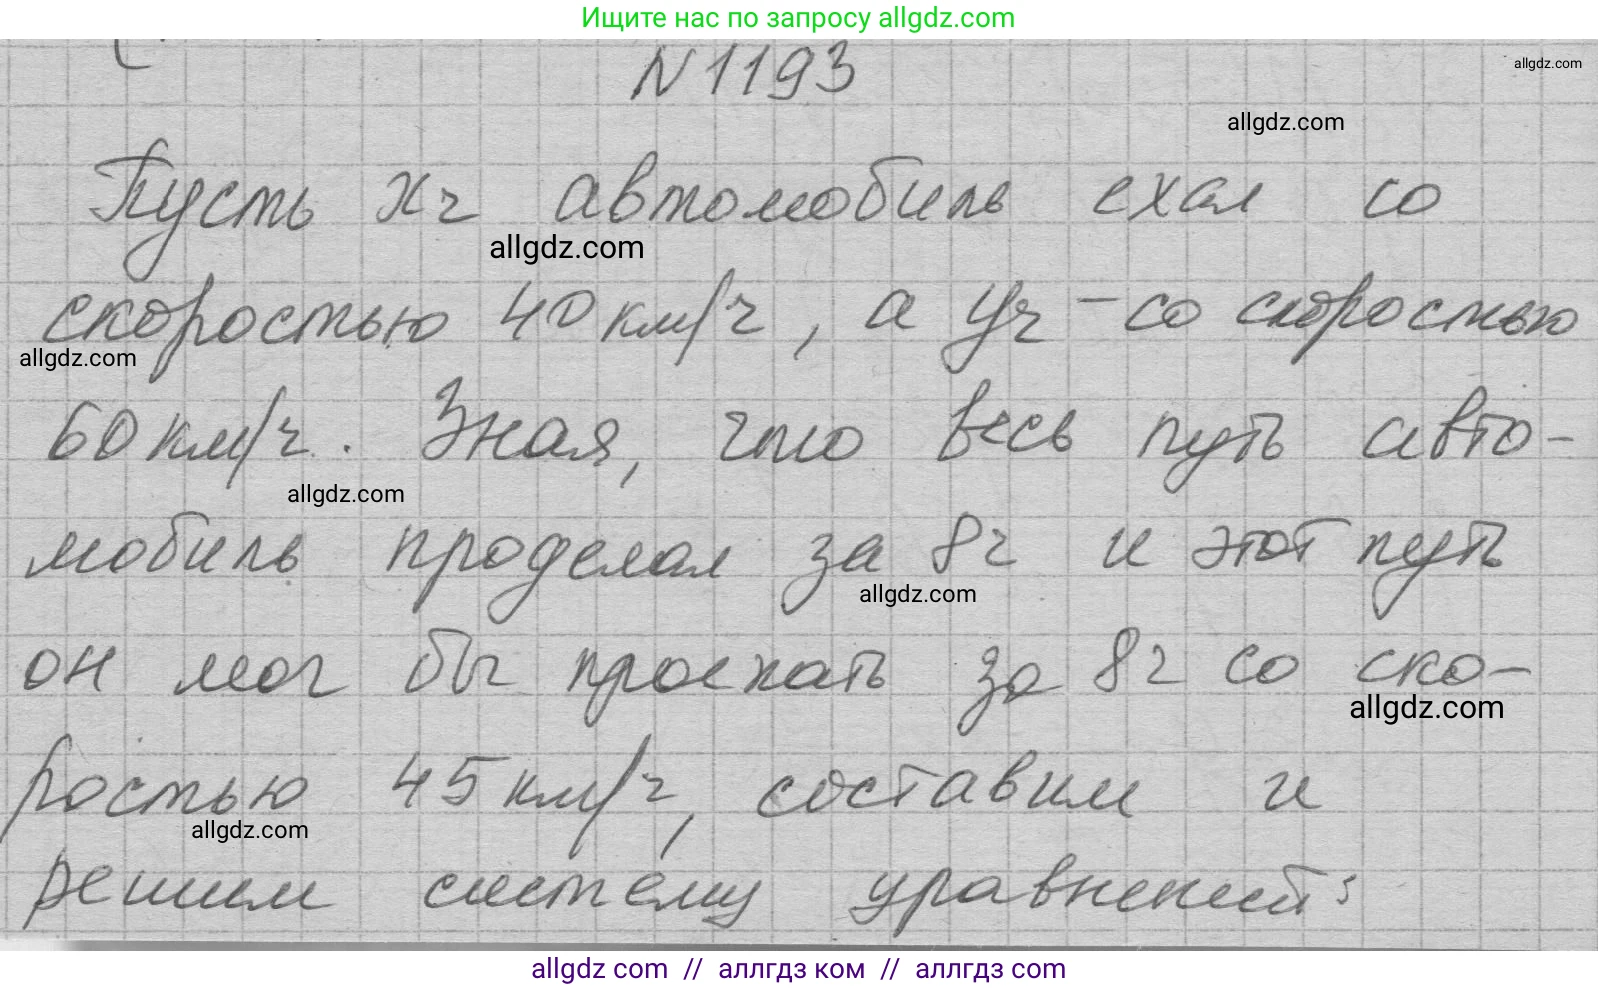 Ищите нас по запросу allgdz.com
allgdz.com
N 1193
allgdz.com
Пусть x ч автомобиль ехал со
allgdz.com
скоростью 40 км/ч, а y ч - со скоростью
allgdz.com
60 км/ч. Зная, что весь путь авто-
allgdz.com
мобиль проделал за 8 ч и этот путь
allgdz.com
он мог бы проехать за 8 ч со ско-
allgdz.com
ростью 45 км/ч, составим и
allgdz.com
решим систему уравнений:
allgdz com // аллгдз ком // аллгдз com